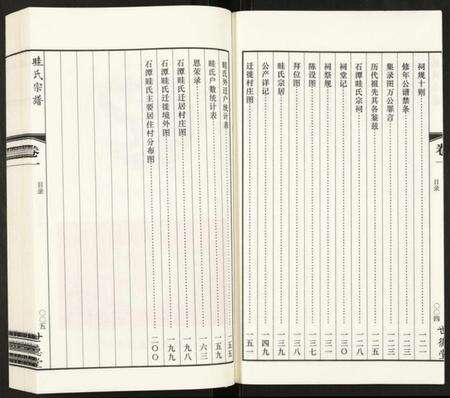 祠规十则 一二一
修年公谱禁条 一二三
集录图万公罪言 一二四
历代祖先其各鉴兹 一二五
石潭眭氏宗祠 一二八
祠堂记 一三〇
祠祭规 一三四
陈设图 一三七
拜位图 一三八
眭氏宗居 一三九
公产详记 一四九
迁徙村庄图 一五一
卷一
目录
〇〇四
世德堂
眭氏外迁户统计表 一五五
眭氏户数统计表 一五九
恩荣录 一六三
石潭眭氏迁居村庄图 一九八
石潭眭氏迁徙境外图 一九九
石潭眭氏主要居住村分布图 二〇〇
眭氏宗谱
卷一
目录
〇〇五